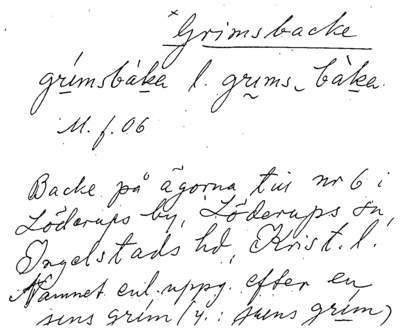 ×Grimsbacke
grímsbàka l. grims, bàka.
M. f. 06
Backe på ägorna till nr 6 i
Löderups by, Löderups sn,
Ingelstads hd, Krist. l.
Namnet enl. uppg. efter en
grim